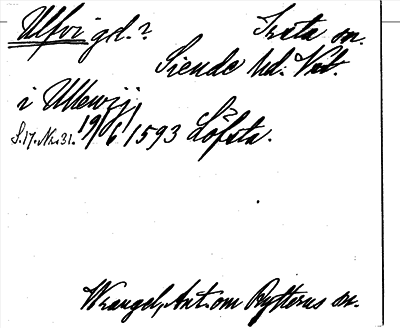 Ulfvi gd.? Irsta sn.
Siende hd. Vstm.
i Ullewij
S.17. Nr. 31. 19/6 1593 Löfsta.
Wrangel, Ant. om Rytterns sn.